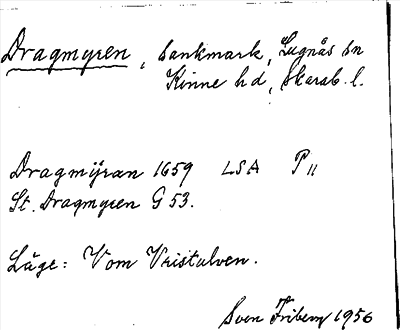 Dragmyren, sankmark, Lugnås sn
Kinne hd, Skarab. l.
Dragmÿran 1659 LSA P 11
St. Dragmyren G 53.
Läge: Vom Vristulven.
Sven Friberg 1956